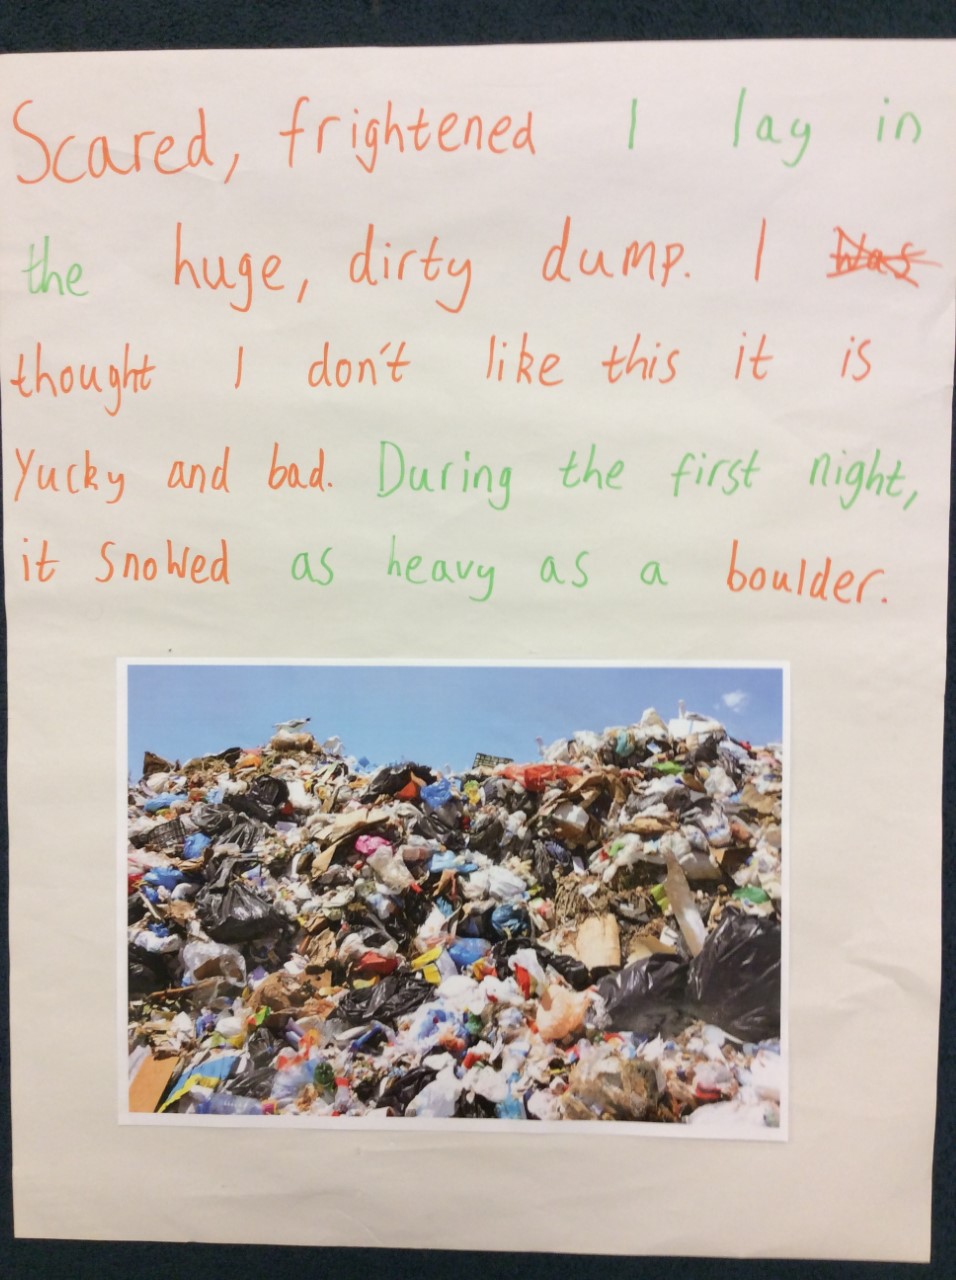 Scared, frightened I lay in
the huge, dirty dump. I was
thought I don't like this it is
Yucky and bad. During the first night,
it snowed as heavy as a boulder.